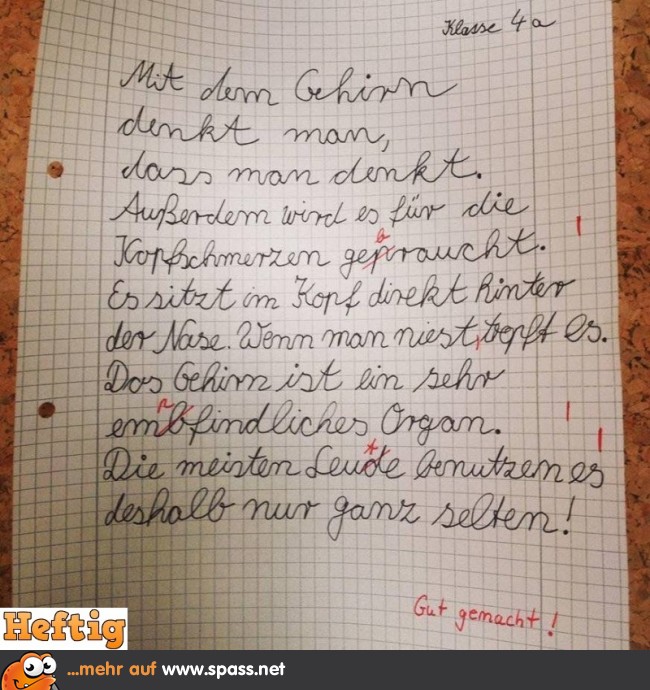 Klasse 4a
Mit dem Gehirn
denkt man,
dass man denkt.
Außerdem wird es für die
Kopfschmerzen gepraucht.
b
Es sitzt im Kopf direkt hinter
der Nase. Wenn man niest, tropft es.
Das Gehirn ist ein sehr
p
embfindliches Organ.
t
Die meisten Leude benutzen es
deshalb nur ganz selten!
Gut gemacht!
Heftig
...mehr auf www.spass.net